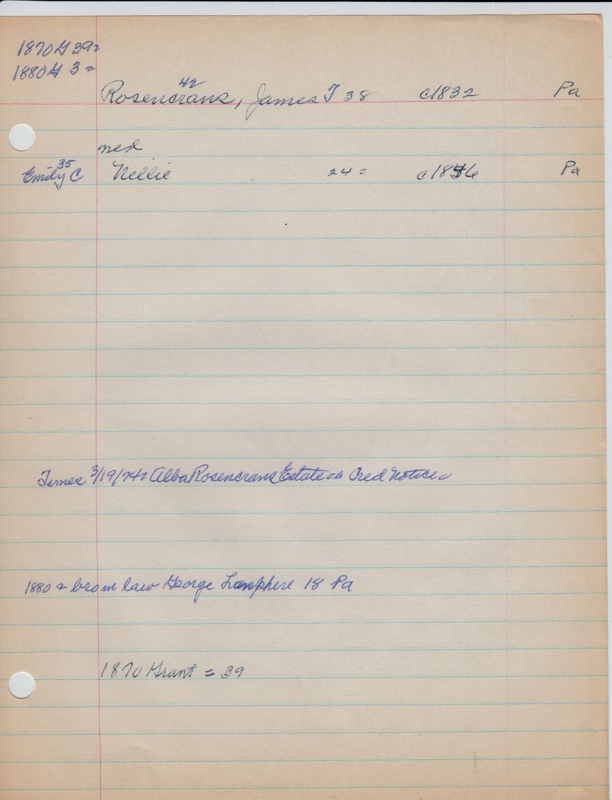 1870 G 39=
1880 G 3=
42
Rosencrans, James T 38 c1832 Pa
ned
35
Emily C Nellie 24= c1846 Pa
Times 3/19/74= Alba Rosencrans Estate = Cred Notice =
1880 = bro in law George Lamphere 18 Pa
1870 Grant = 39